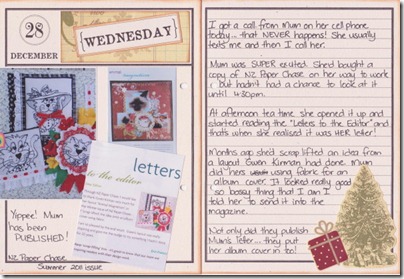 28
DECEMBER
{WEDNESDAY}
letters
to the editor
Yippee! Mum
has been
PUBLISHED!
NZ Paper Chase
Summer 2011 issue
I got a call from Mum on her cell phone
today... that NEVER happens! She usually
texts me and then I call her.
Mum was SUPER excited. She'd bought a
copy of NZ Paper Chase on her way to work
but hadn't had a chance to look at it
until 4:30pm.
At afternoon tea time she opened it up and
started reading the "Letters to the Editor" and
that's when she realised it was HER letter!
Months ago she'd scrap lifted an idea from
a layout Gwen Kirman had done. Mum
did hers using fabric for an
album cover. It looked really good
so bossy thing that I am I
told her to send it into the
magazine.
Not only did they publish
Mum's letter... they put
her album cover in to!